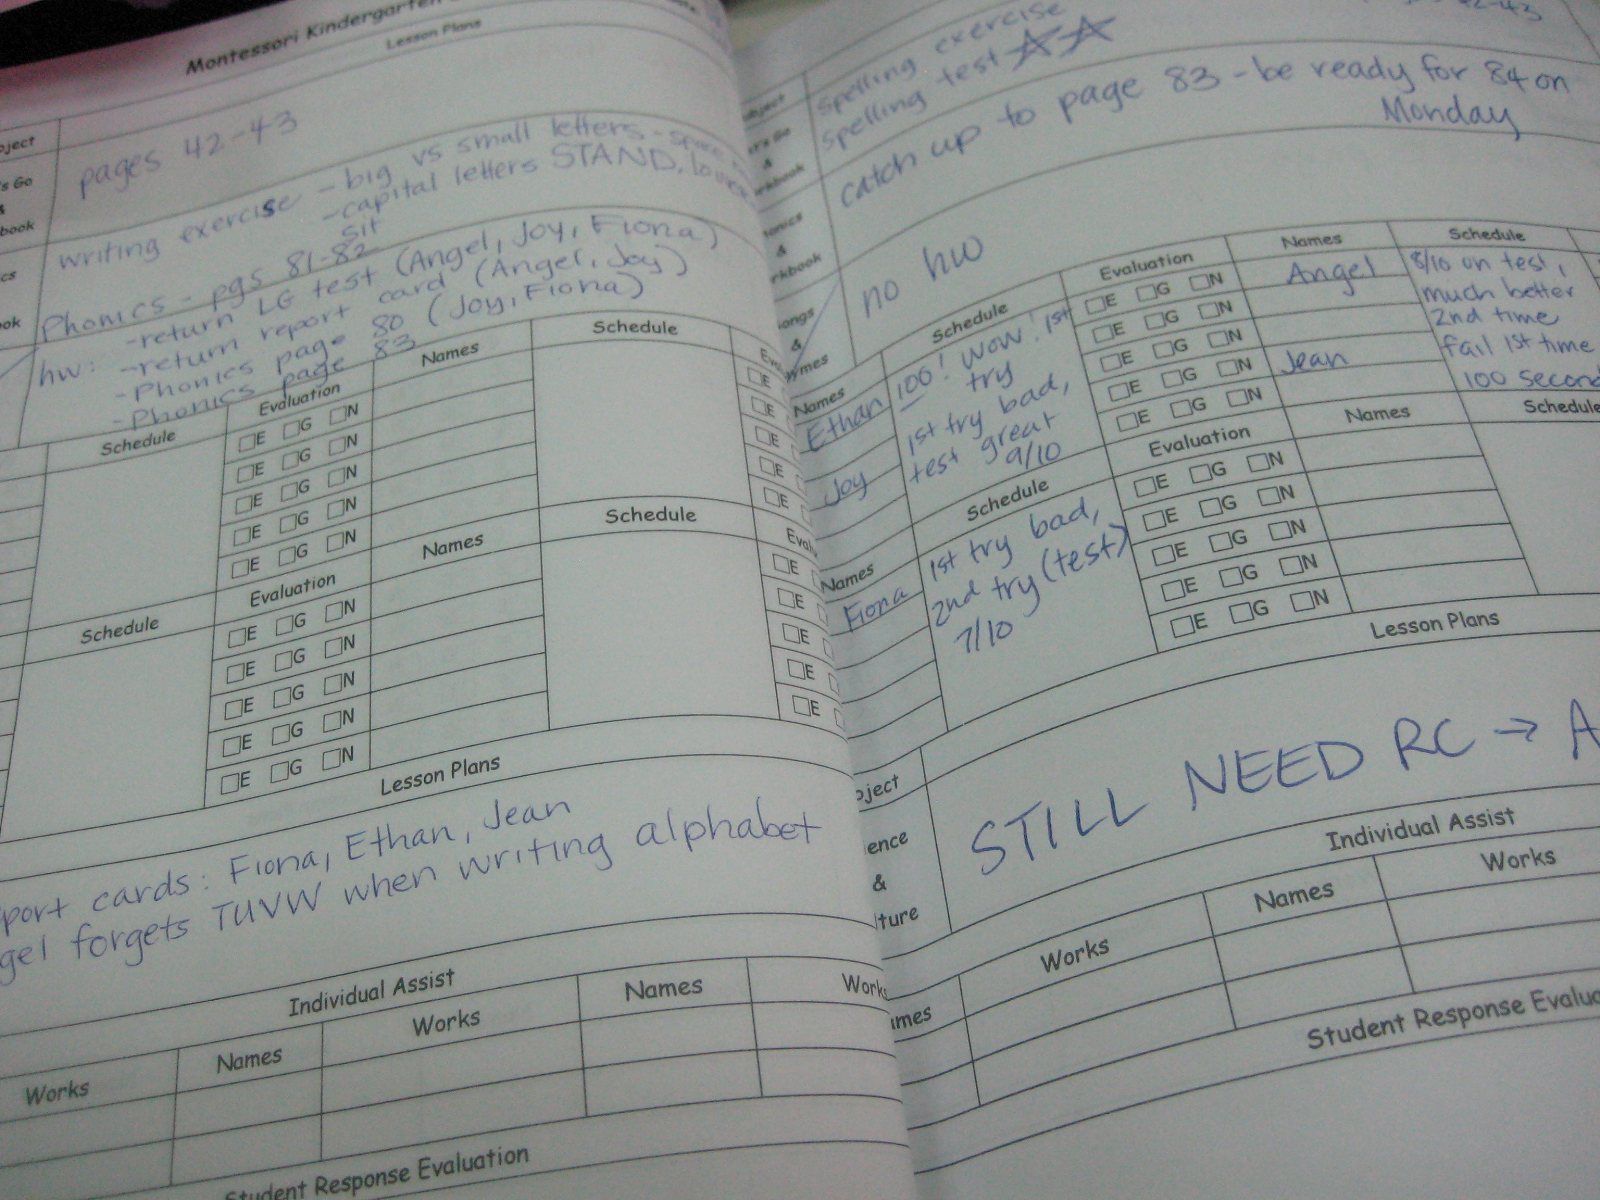 Montessori Kindergarten
Lesson Plans
pages 42-43
writing exercise - big vs small letters - space
- capital letters STAND, lower
sit
Phonics - pgs 81-82
hw: - return LG test (Angel, Joy, Fiona)
- return report card (Angel, Joy)
- Phonics page 80 (Joy, Fiona)
- Phonics page 83
Schedule Evaluation Names Schedule
E G N
E G N
E G N
E G N
E G N
Schedule Evaluation Names Schedule
E G N
E G N
E G N
E G N
E G N
Lesson Plans
port cards: Fiona, Ethan, Jean
gel forgets TUVW when writing alphabet
Individual Assist
Works Names Works Names Works
Student Response Evaluation
spelling exercise
spelling test
catch up to page 83 - be ready for 84 on
Monday
no hw
Names Schedule Evaluation Names Schedule
Ethan 100! wow! 1st
try
Joy 1st try bad,
test great
9/10
E G N
E G N
E G N
E G N
E G N
Angel 8/10 on test,
much better
2nd time
Jean fail 1st time
100 second
Names Schedule Evaluation Names Schedule
Fiona 1st try bad,
2nd try (test)
7/10
E G N
E G N
E G N
E G N
E G N
Lesson Plans
ject
ence
&
ture
STILL NEED RC → A
Individual Assist
mes Works Names Works
Student Response Evalua